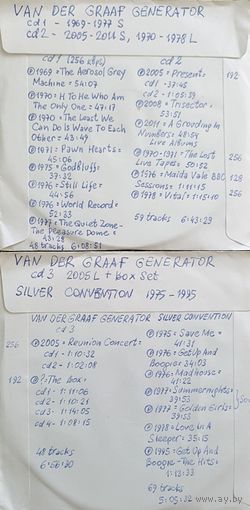 VAN DER GRAAF GENERATOR
cd 1 - 1969-1977 S
cd 2 - 2005-2011 S, 1970-1978 L
cd 1 (256 kbps)
℗ 1969 = The Aerosol Grey
Machine = 54:07
℗ 1970 = H To He Who Am
The Only One = 47:17
℗ 1970 = The Least We
Can Do Is Wave To Each
Other = 43:49
℗ 1971 = Pawn Hearts =
45:06
℗ 1975 = Godbluff =
37:32
℗ 1976 = Still Life =
44:56
℗ 1976 = World Record =
52:33
℗ 1977 = The Quiet Zone -
The Pleasure Dome =
43:28
48 tracks 6:08:51
cd 2
℗ 2005 = Present: 192
cd1 - 37:46
cd2 - 1:05:39
℗ 2008 = Trisector =
53:51
℗ 2011 = A Grounding In
Numbers = 48:54
Live Albums
℗ 1970-1971 = The Lost 256
Live Tapes = 50:52
℗ 1976 = Maida Vale BBC 128
Sessions = 1:11:15
℗ 1978 = Vital = 1:15:10 256
59 tracks 6:43:29
VAN DER GRAAF GENERATOR
cd 3 2005 L + box set
SILVER CONVENTION 1975-1995
VAN DER GRAAF GENERATOR
cd 3
256 ℗ 2005 = Reunion Concert =
cd1 - 1:10:32
cd2 - 1:02:08
192 ℗ ? = The Box:
cd 1 - 1:11:06
cd 2 - 1:10:21
cd 3 - 1:14:05
cd 4 - 1:08:15
48 tracks
6:56:30
SILVER CONVENTION
℗ 1975 = Save Me =
41:31
℗ 1976 = Get Up And
Boogie = 34:03
℗ 1976 = Madhouse =
41:22
℗ 1977 = Summernights =
39:53
℗ 1977 = Golden Girls =
39:53
℗ 1978 = Love In A
Sleeper = 35:15
℗ 1995 = Get Up And
Boogie - The Hits =
1:13:33
69 tracks
5:05:32
www.ay.by